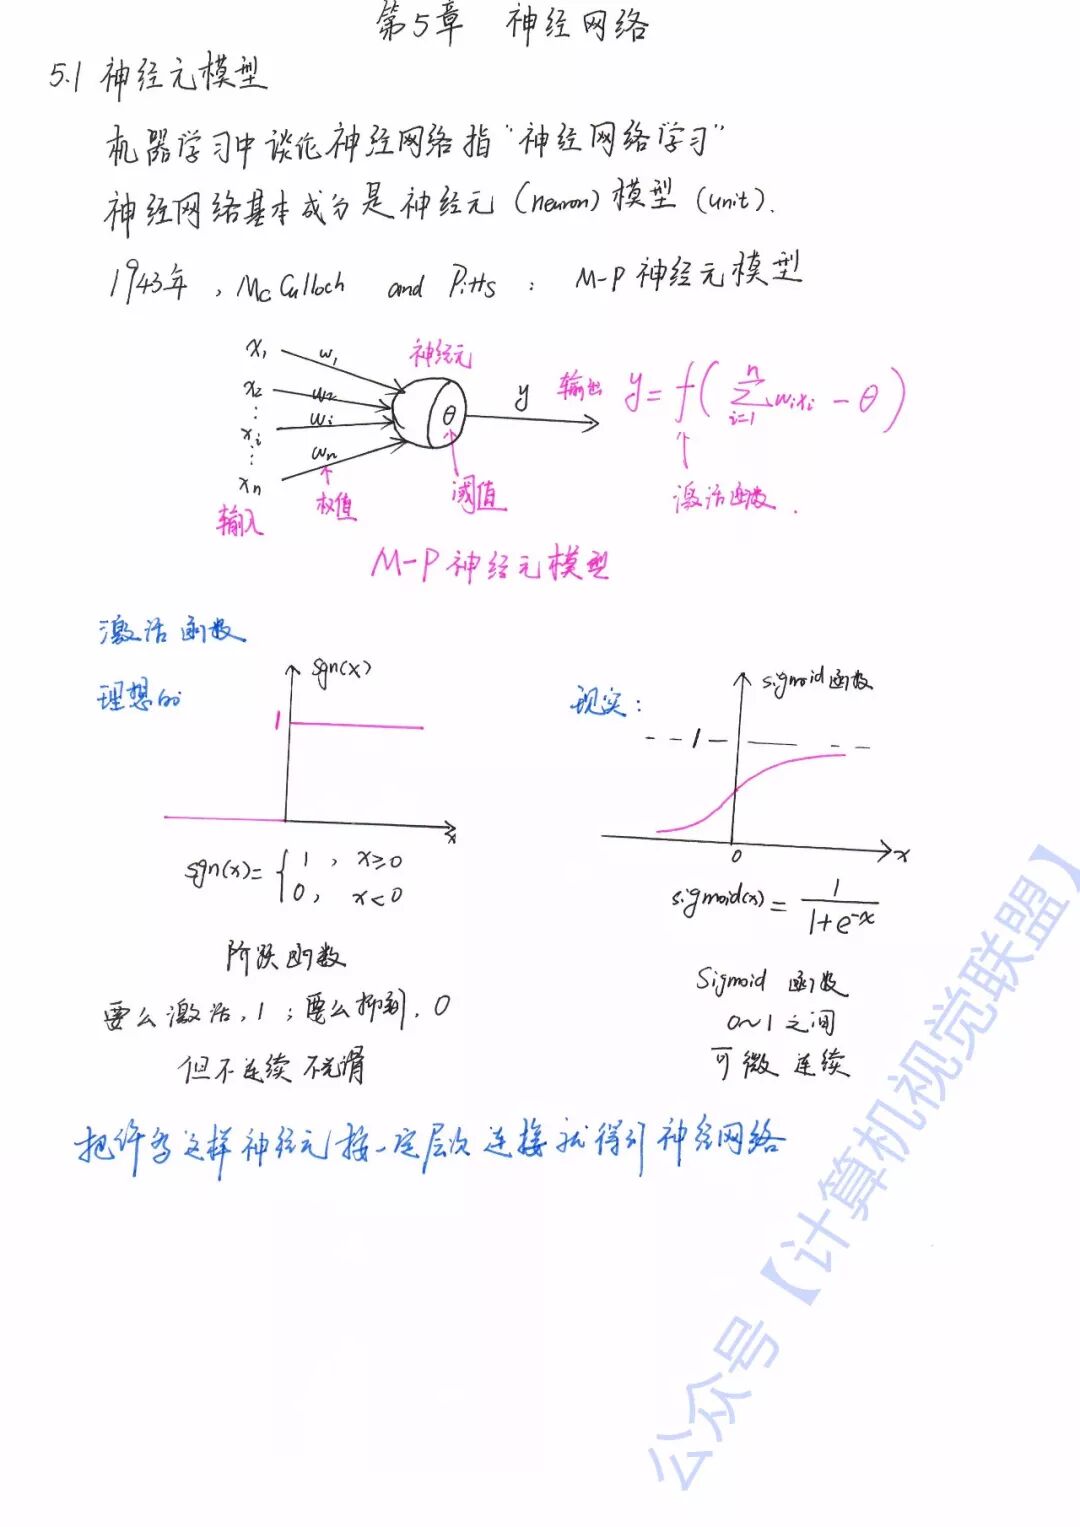 第5章 神经网络
5.1 神经元模型
机器学习中谈论神经网络指“神经网络学习”
神经网络基本成分是神经元(neuron)模型(unit).
1943年, McCulloch and Pitts: M-P神经元模型
x₁ w₁ 神经元
x₂ w₂ y 输出 y=f(∑ⁿᵢ₌₁wᵢxᵢ-θ)
⋮
xᵢ wᵢ θ
⋮
xₙ wₙ
输入 权值 阈值 激活函数.
M-P神经元模型
激活函数
理想的 sgn(x)
1
x
现实: sigmoid函数
1
0 x
sgn(x)={1, x≥0
0, x<0
sigmoid(x)=1/(1+e^-x)
阶跃函数
要么激活,1;要么抑制,0
但不连续不光滑
Sigmoid函数
0~1之间
可微 连续
把许多这样神经元按一定层次连接就得到神经网络
公众号【计算机视觉联盟】